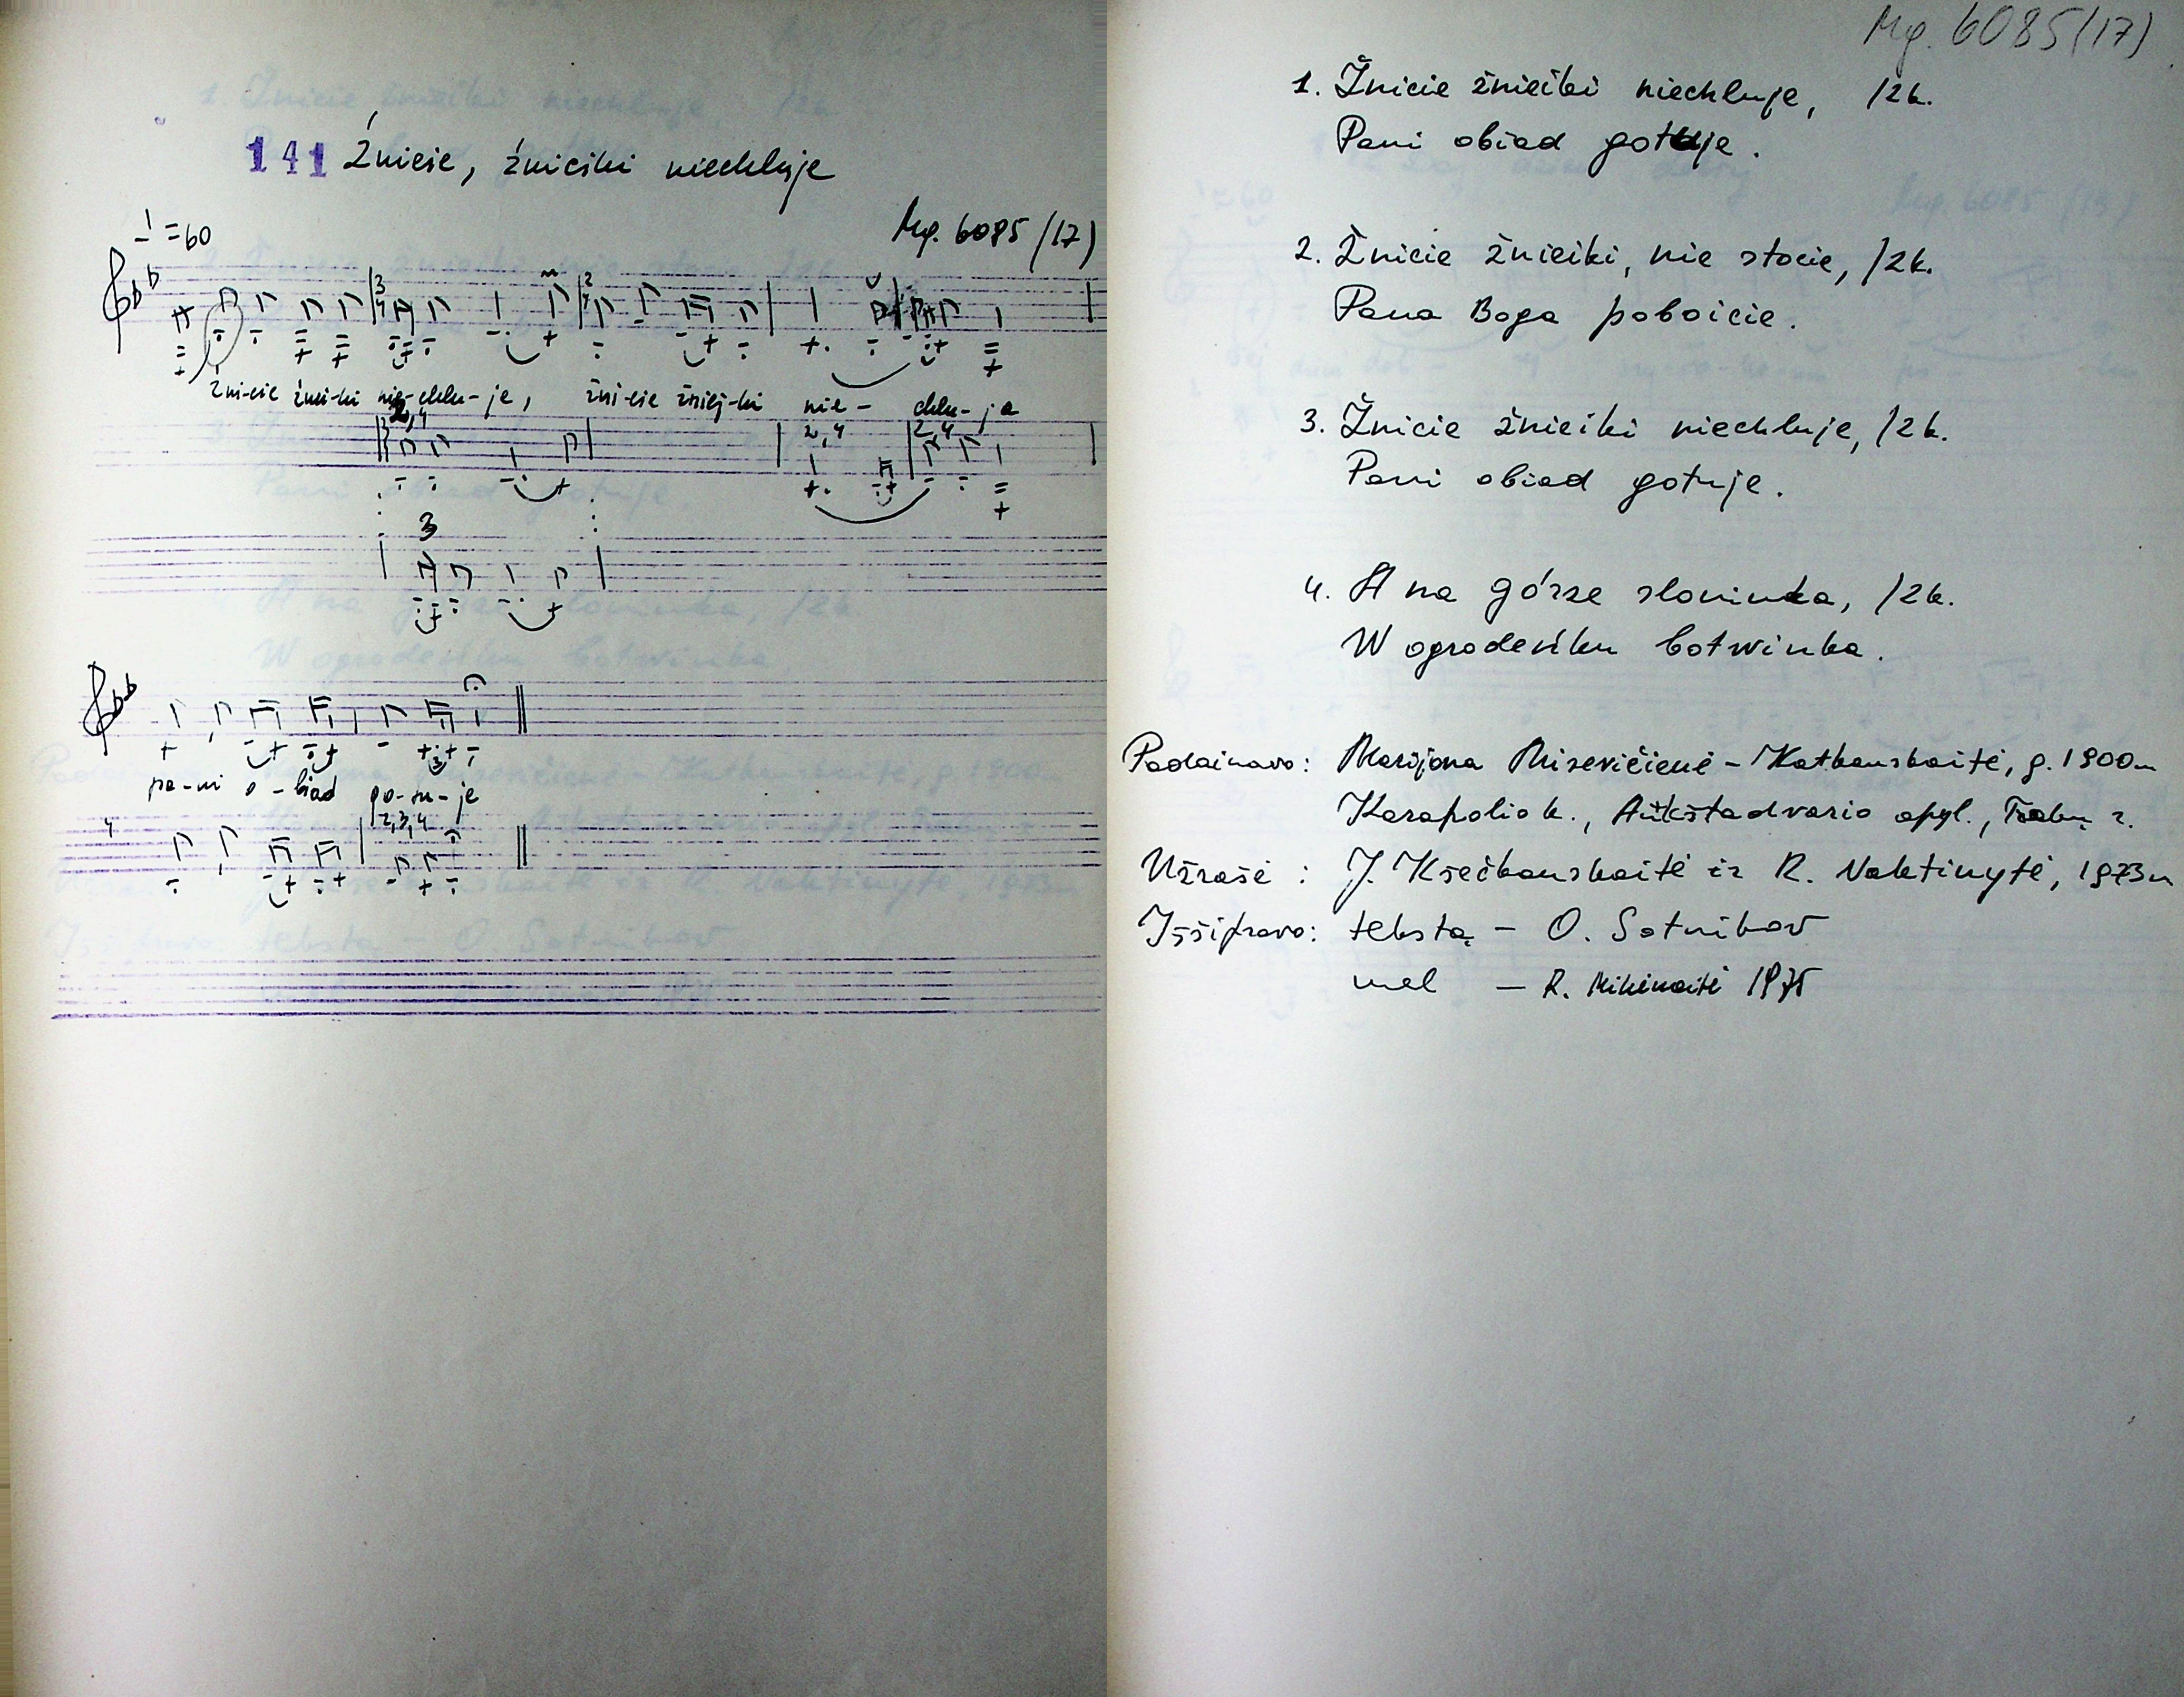 141 Żnicie, żnieiki niechluje
Mg. 6085 (17)
= 60
żni-cie żnei-ki nie-chlu-je, żni-cie żniej-ki nie- chlu-je
2,4
2,4
2,4
3
pa-ni o-biad go-tu-je
2,3,4
4
Mg. 6085 (17)
1. Żnicie żnieiki niechluje, /2k.
Pani obiad gotuje.
2. Żnicie żnieiki, nie stocie, /2k.
Pana Boga poboicie.
3. Żnicie żnieiki niechluje, /2k.
Pani obiad gotuje.
4. A na górze sloninka, /2k.
W ogrodeńku botwinka.
Padainavo: Marijona Misevičienė - Katkauskaitė, g. 1900 m
Karapolio k., Aukštadvario apyl., Trakų r.
Užrašė : J. Krečkauskaitė ir R. Naktinytė, 1973 m
Iššifravo: tekstą - O. Sotnikov
mel - R. Mikėnaitė 1975